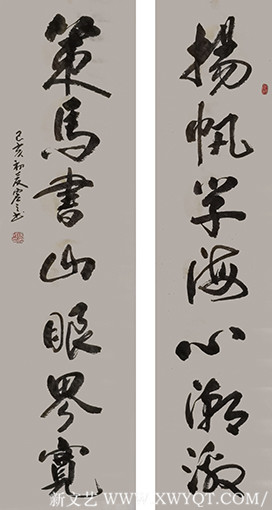 揚帆学海心潮激
策馬書山眼界寬
己亥初夏
新文艺 / WWW.XWYQT.COM /